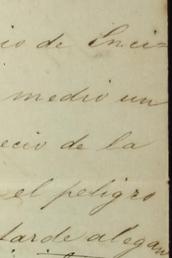 io de Enci=
medio un
ecio de la
el peligro
tarde alegan